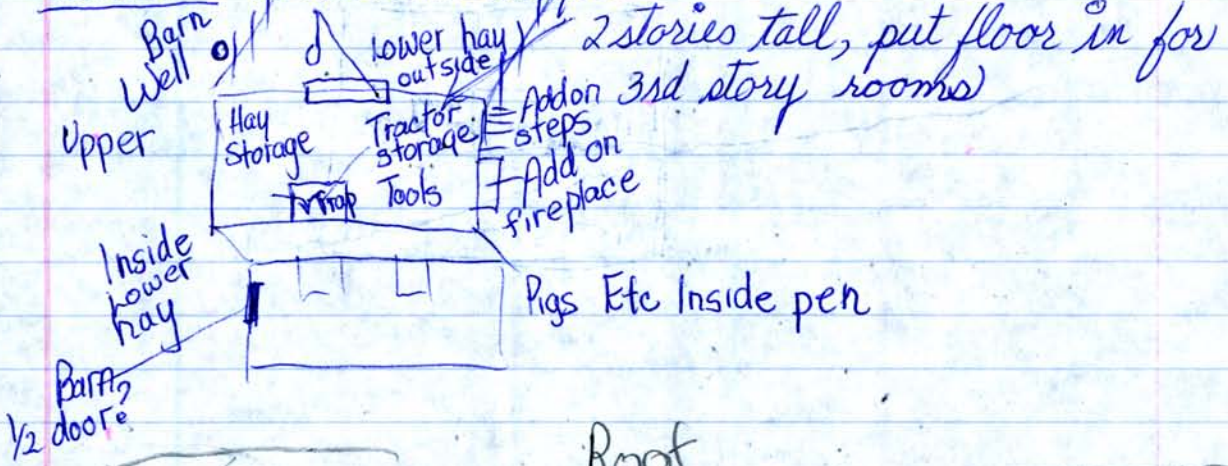 Barn
Well
Upper
Lower hay
outside
2 stories tall, put floor in for
3rd story rooms
Hay
Storage
Tractor
storage
Tools
Trap
Add on
steps
Add on
fireplace
Inside
Lower
hay
Pigs Etc Inside pen
Barn
1/2 door
Roof